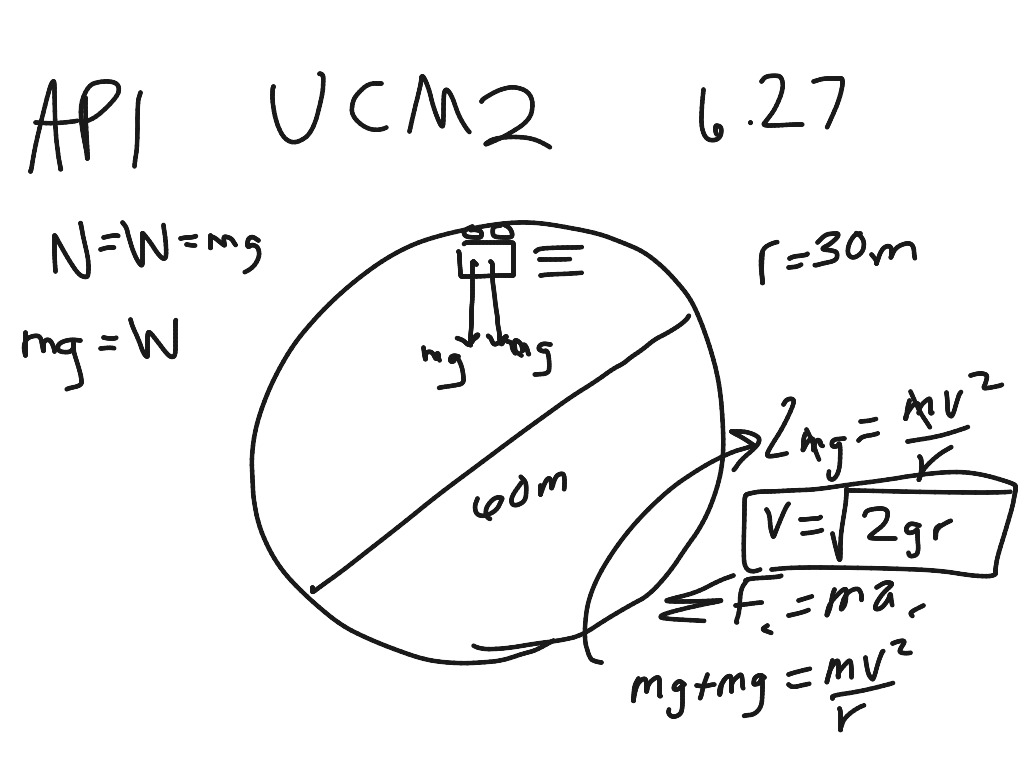 API UCM2 6.27
N=W=mg
r=30m
mg=W
mg mg
2mg = mv²/r
60m
v=√2gr
ΣF_c = ma_c
mg+mg = mv²/r